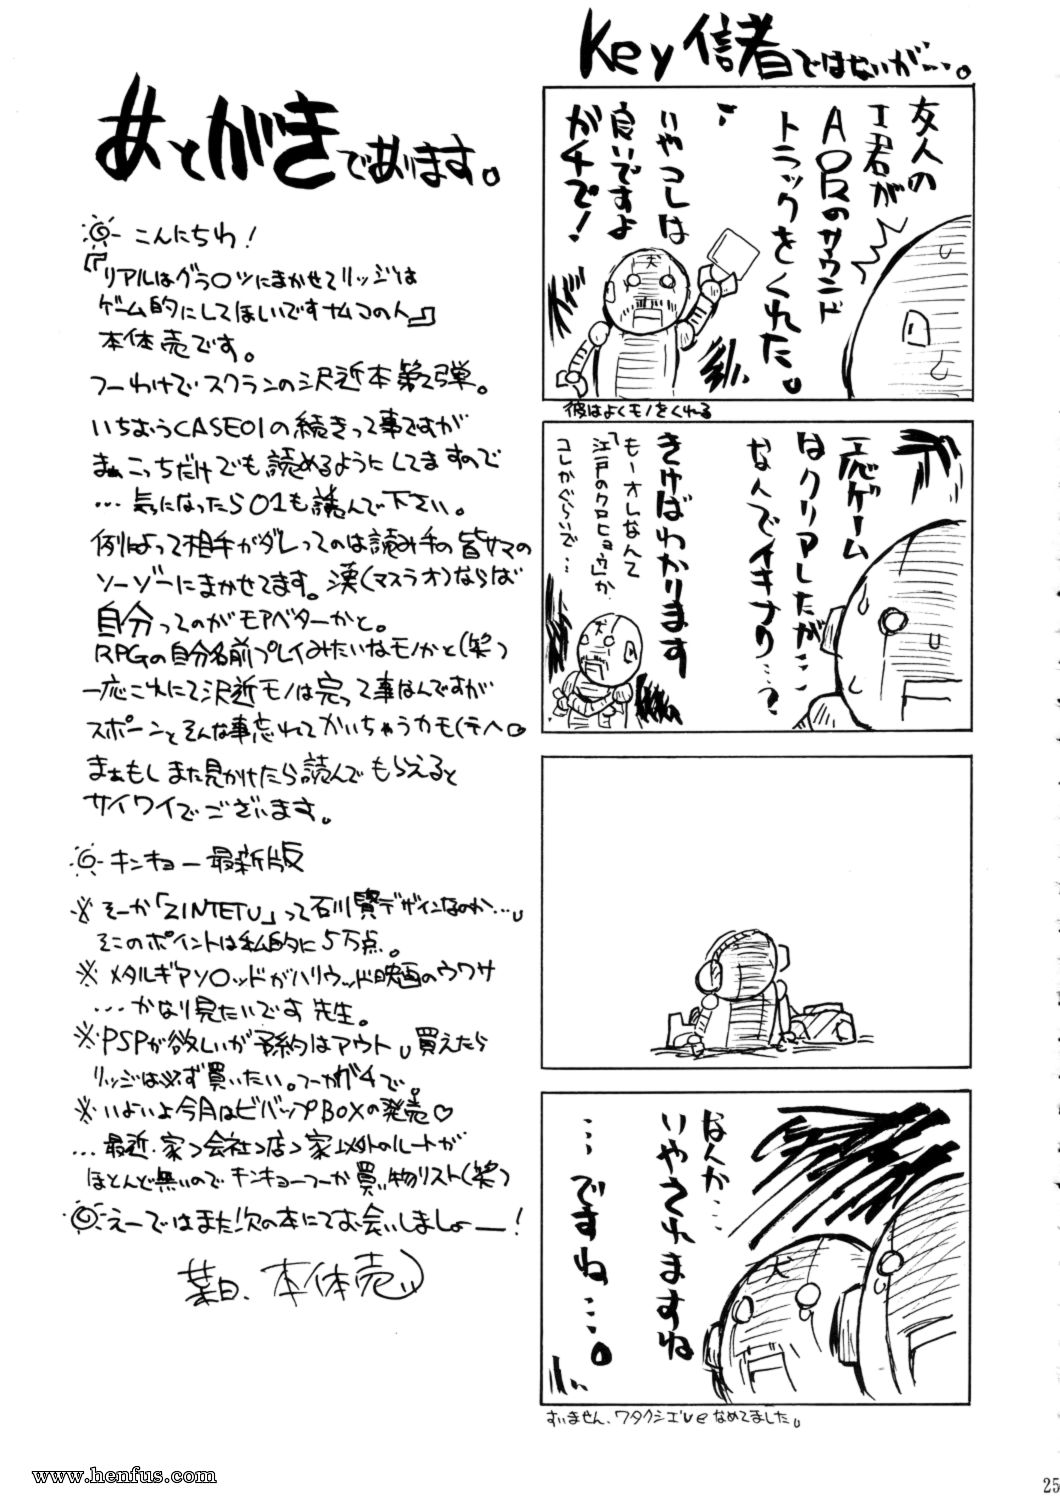 Key信者ではないが…。
あとがきであります。
こんにちわ!
『リアルはグラ○ツにまかせてリッジは
ゲーム的にしてほしいですナムコの人』
本体売です。
つーわけでスクランの沢近本第2弾。
いちおうCASE01の続きって事ですが
まぁこっちだけでも読めるようにしてますので
…気になったら01も読んで下さい。
例によって相手がダレってのは読み手の皆サマの
ソーゾーにまかせてます。漢(マスラオ)ならば
自分ってのがモアベターかと。
RPGの自分名前プレイみたいなモノかと(笑)
一応これにて沢近モノは完って事なんですが
スポーンとそんな事忘れてかいちゃうカモ(テヘ。
まぁもしまた見かけたら読んでもらえると
サイワイでございます。
キンキョー最新版
※そーか「ZINTETU」って石川賢デザインなのか…。
そこのポイントは私的に5万点。
※メタルギアソ○ッドがハリウッド映画のウワサ
…かなり見たいです先生。
※PSPが欲しいが予約はアウト。買えたら
リッジは必ず買いたい。つーかガチで。
※いよいよ今月はビバップBOXの発売♡
…最近、家→会社→店→家以外のルートが
ほとんど無いのでキンキョーつーか買い物リスト(笑)
えーではまた次の本にてお会いしましょー!
葉月、本体売
友人の
I君が
AIRのサウンド
トラックをくれた。
いやコレは
良いですよ
ガチで!
彼はよくモノをくれる
一応ゲーム
はクリアしたが…
なんでイキナリ…?
きけばわかります
もーオレなんて
「江戸のクロヒョウ」か
コレかぐらいで…
なんか…
いやされますね
…ですね…。
すいません、ワタクシエ゛ve なめてました。
www.henfus.com
25